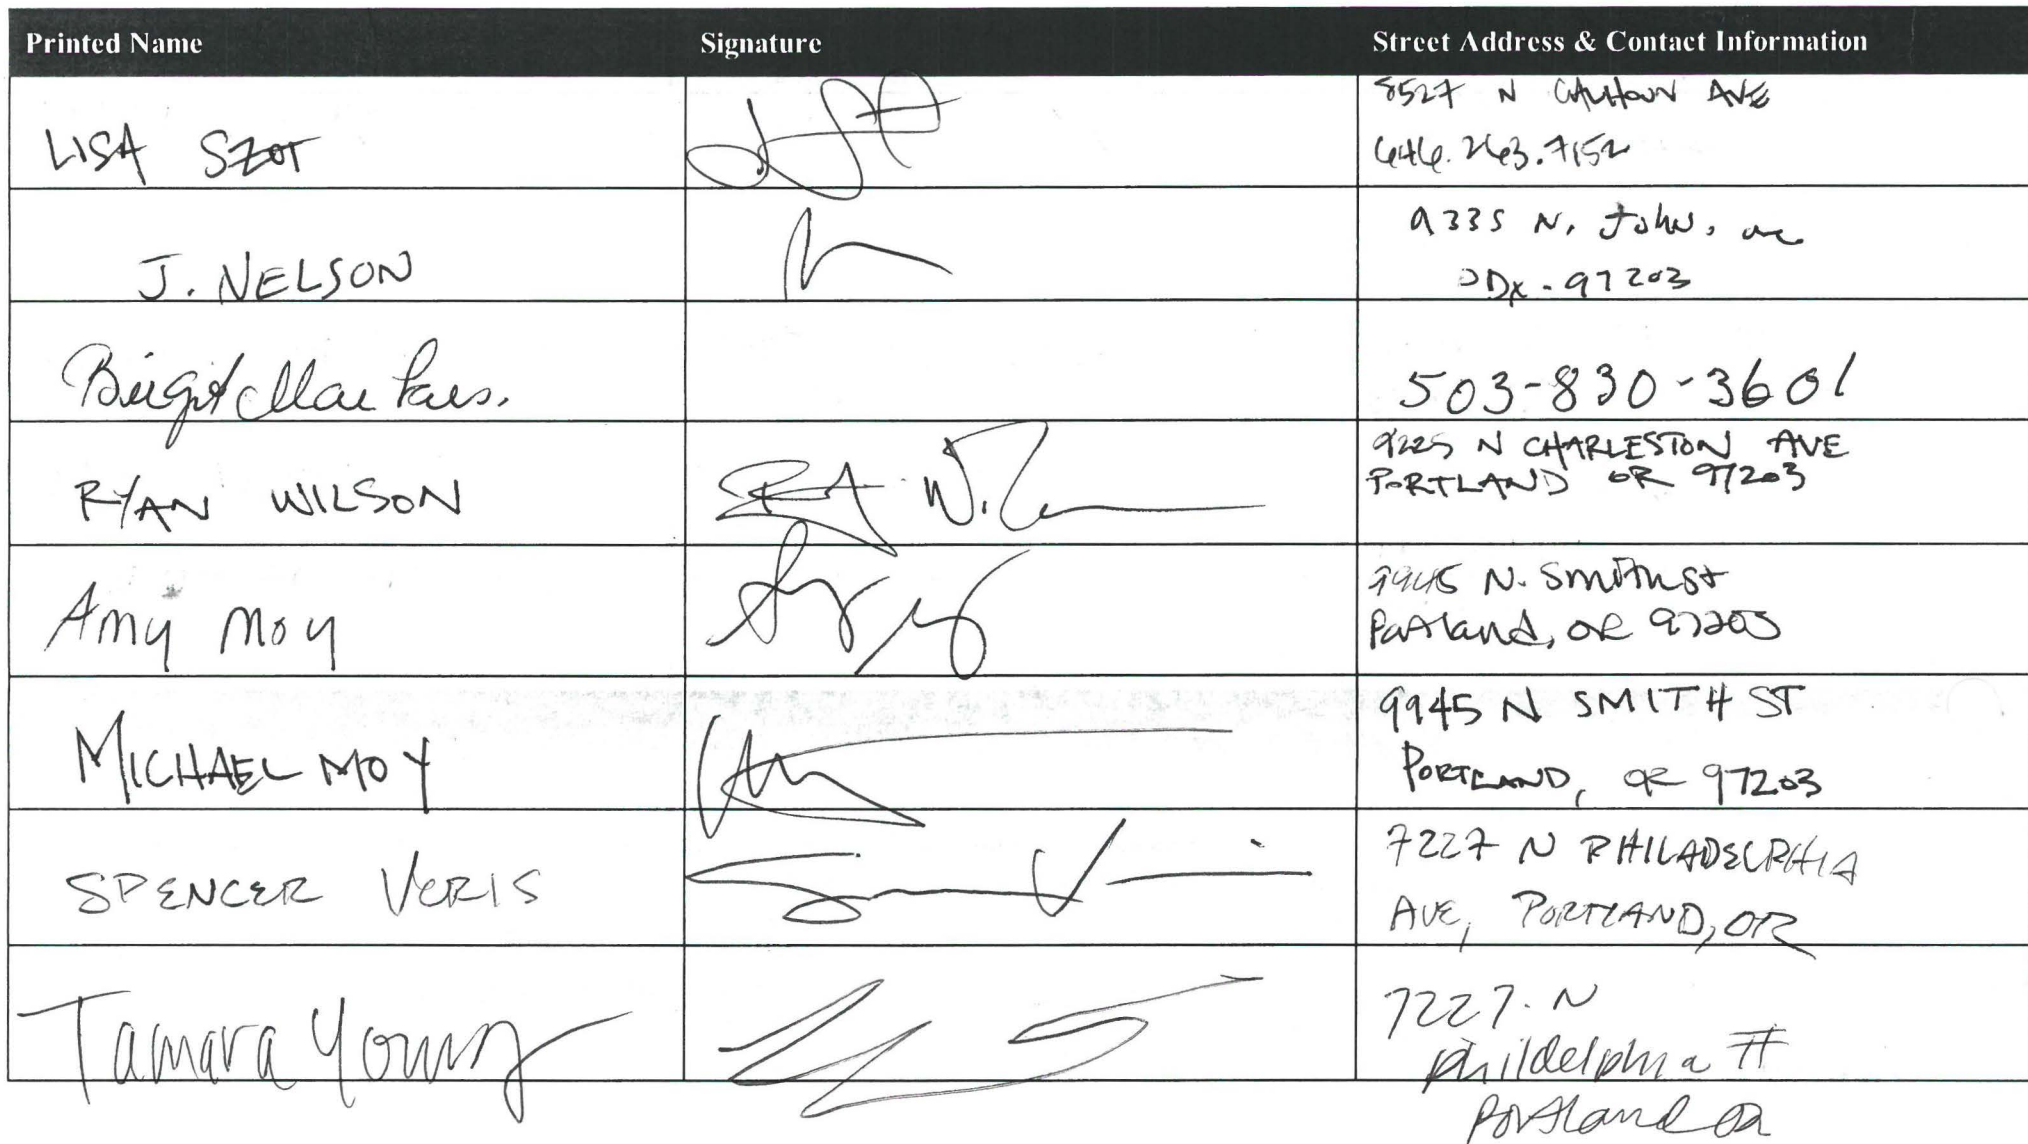 Printed Name Signature Street Address & Contact Information
LISA SZOT 8527 N CALHOUN AVE
646.263.7152
J. NELSON 9335 N. John. ave
PDX - 97203
Birgit 503-830-3601
RYAN WILSON 9225 N CHARLESTON AVE
PORTLAND OR 97203
Amy Moy 9945 N. Smith St
Portland, OR 97203
MICHAEL MOY 9945 N SMITH ST
PORTLAND, OR 97203
SPENCER VERIS 7227 N PHILADELPHIA
AVE, PORTLAND, OR
Tamara Young 7227. N
Phildelphia
Portland OR